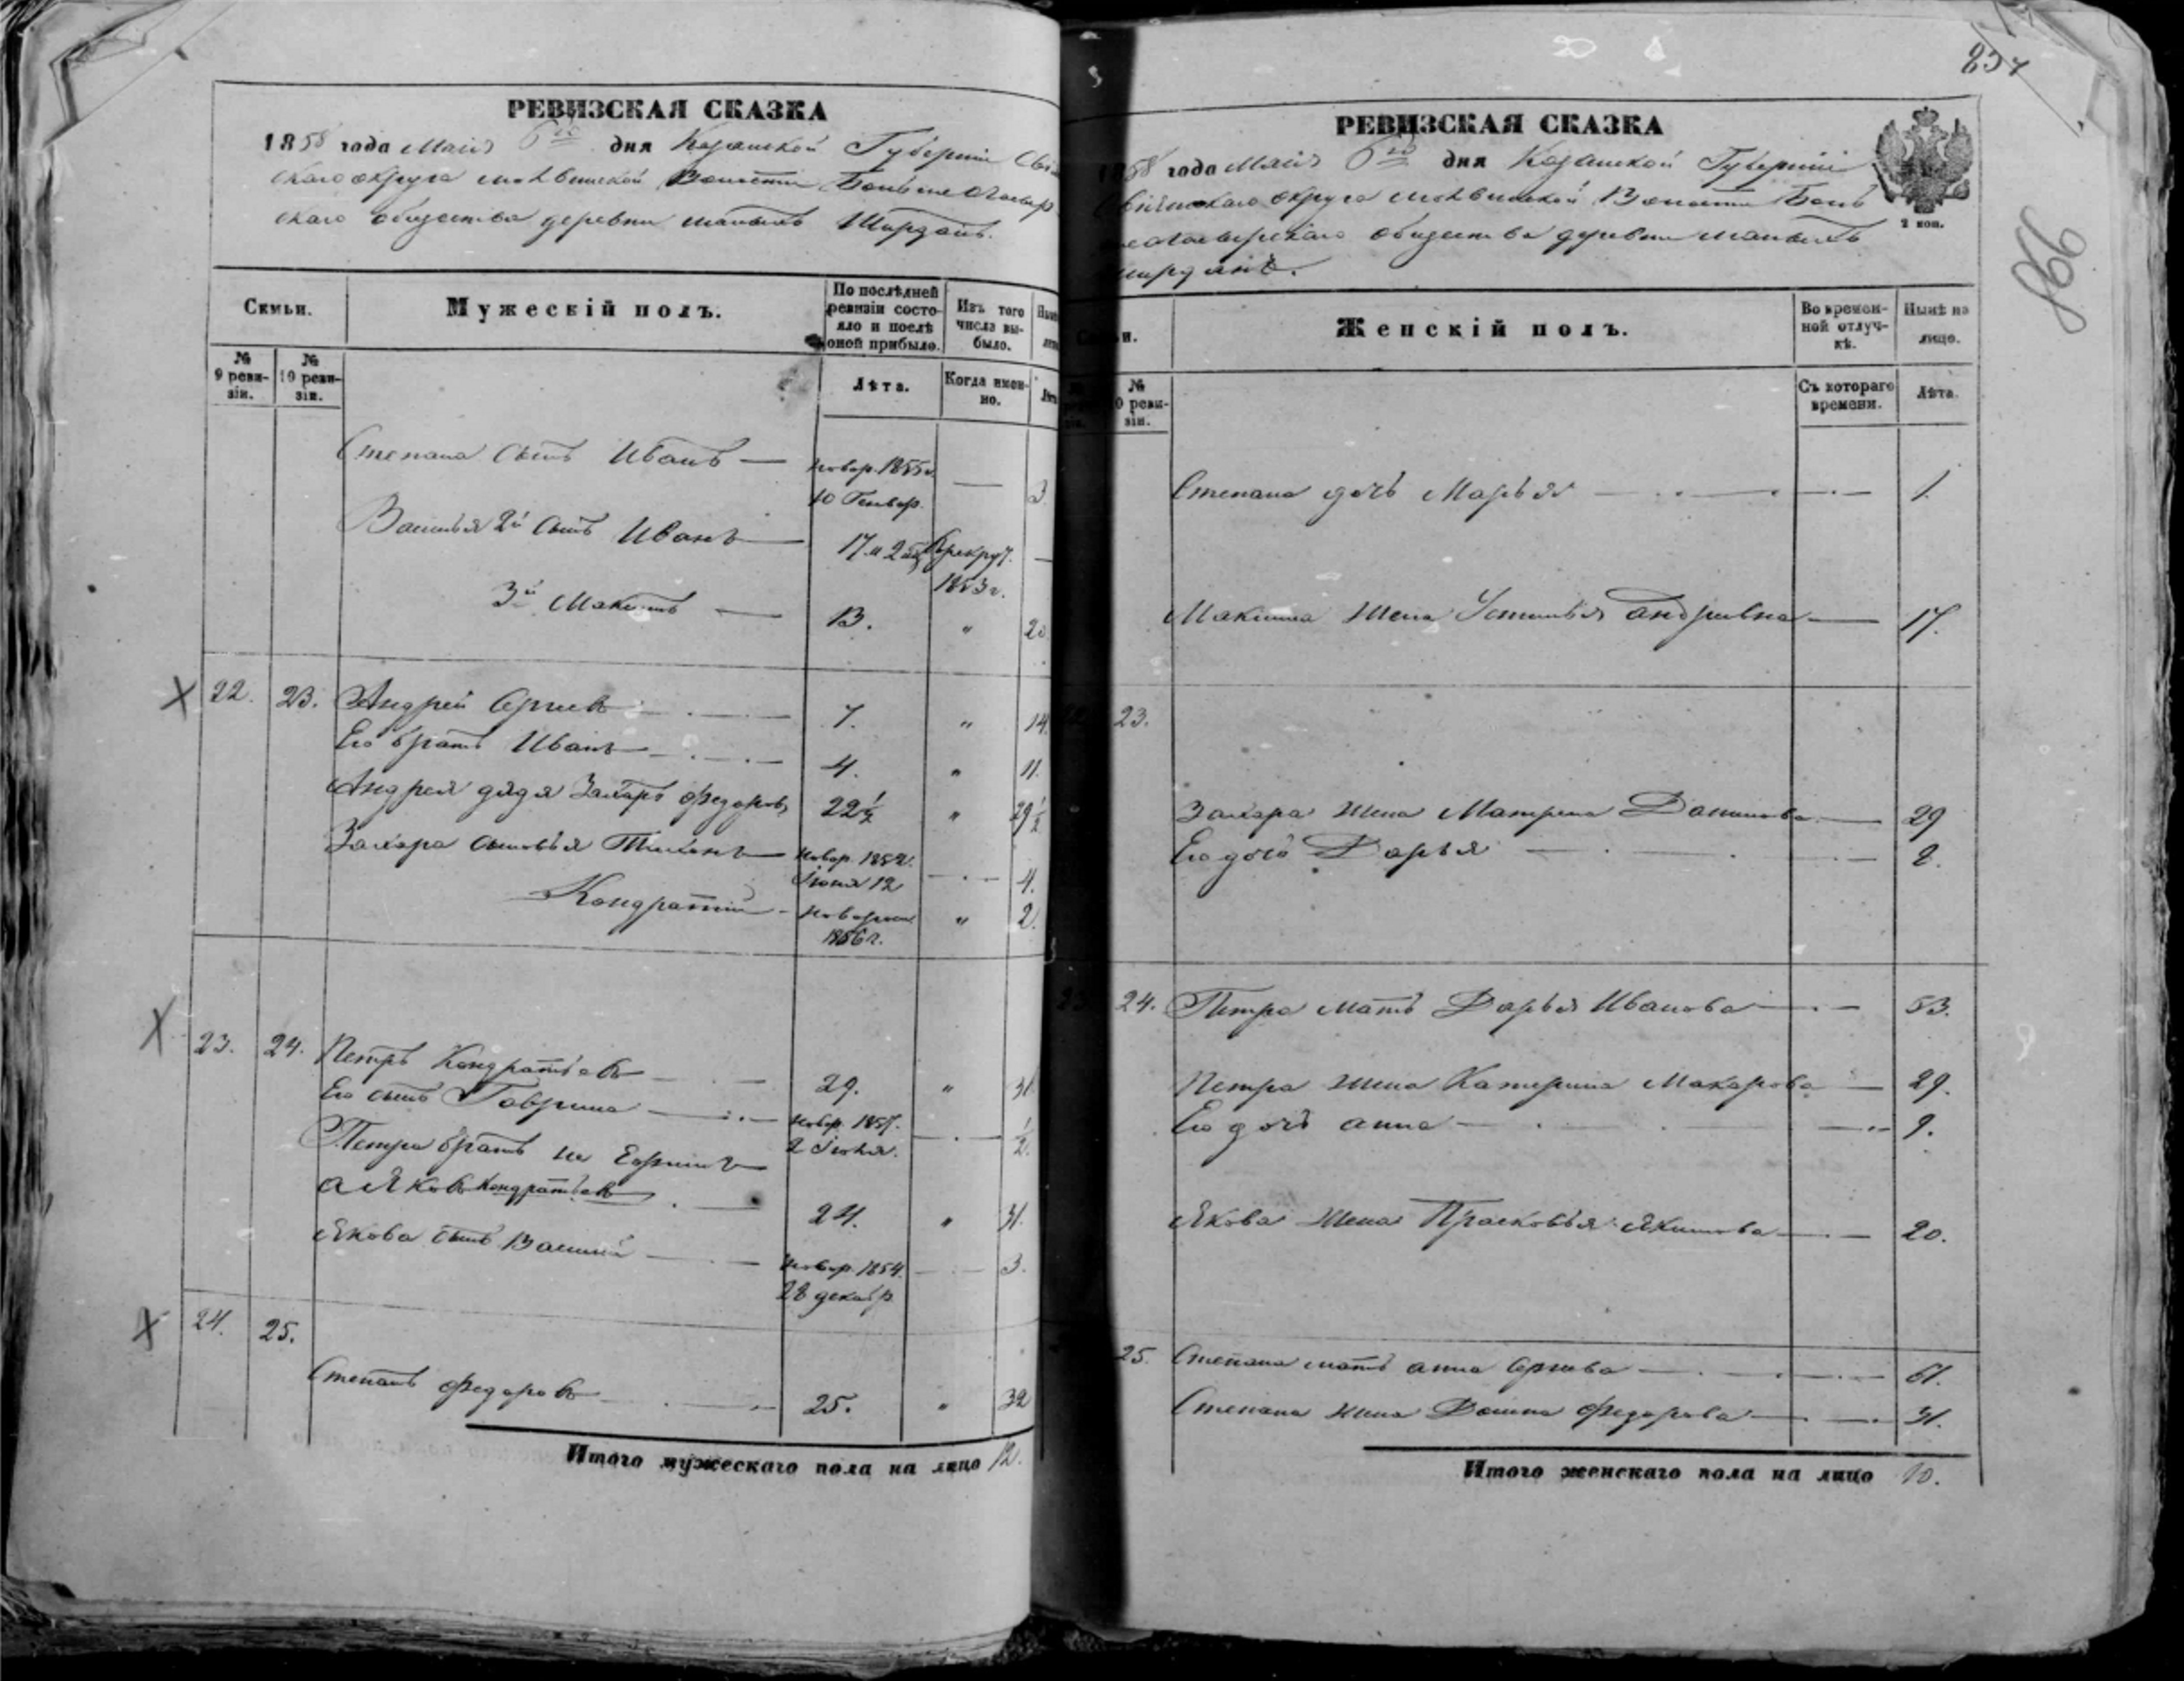 РЕВИЗСКАЯ СКАЗКА
1858 года Маія 6го дня Казанской Губерніи
скаго округа Волости
скаго общества деревни малыхъ Ширданъ.
Семьи.
Мужескій полъ.
По послѣдней ревизіи состояло и послѣ оной прибыло.
Изъ того числа выбыло.
№ 9 ревизіи.
№ 10 ревизіи.
Лѣта.
Когда именно.
Степана сынъ Иванъ — новор. 1855 г. 10 Генвар. — 3.
Василья 2й сынъ Иванъ — 17 и 2 Врекрут. 1853 г. —
3й Максимъ — 13. " 20
22. 23. Андрей Сергеевъ 7. " 14.
Его братъ Иванъ 4. " 11.
Андрея дядя Захаръ Федоровъ 22½ " 29½
Захара сыновья Тихонъ новор. 1852. Іюня 12 — 4.
Кондратій - новорож. 1856 г. " 2.
23. 24. Петръ Кондратьевъ 29. " 31
Его сынъ Гаврила новор. 1857. 2 Іюля. — ½.
Петра братъ не Ефимъ
а Яковъ Кондратьевъ 24. " 31.
Якова сынъ Василій новор. 1854. 28 декабр. — 3.
24. 25.
Степанъ Федоровъ 25. " 32
Итого мужескаго пола на лицо 12.
237
866
РЕВИЗСКАЯ СКАЗКА
1858 года Маія 6го дня Казанской Губерніи
Свіяжскаго округа Волости
общества деревни малыхъ
Ширданъ.
2 коп.
Женскій полъ.
Во временной отлучкѣ.
Нынѣ на лицо.
№ 10 ревизіи.
Съ котораго времени.
Лѣта.
Степана дочь Марья — 1.
Максима жена Устинья Андреевна — 17.
23.
Захара жена Матрена Данилова — 29
Его дочь Дарья — 8.
24. Петра мать Дарья Иванова — 53.
Петра жена Катерина Макарова — 29.
Его дочь Анна — 9.
Якова жена Прасковья Якимова — 20.
25. Степана мать Анна Сергеева — 61.
Степана жена Федорова — 31.
Итого женскаго пола на лицо 10.